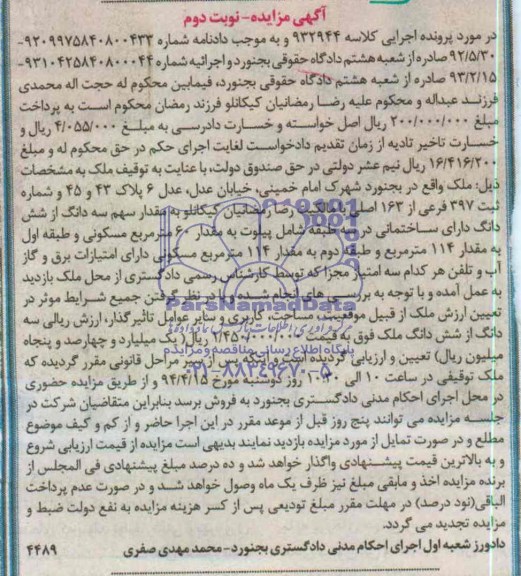 آگهی مزایده - نوبت دوم
در مورد پرونده اجرایی کلاسه ۹۳۲۹۴۴ و به موجب دادنامه شماره ۹۲۰۹۹۷۵۸۴۰۸۰۰۴۳۳-
۹۲/۵/۳۰ صادره از شعبه هشتم دادگاه حقوقی بجنورد و اجرائیه شماره ۹۳۱۰۴۲۵۸۴۰۸۰۰۰۴۴-
۹۳/۲/۱۵ صادره از شعبه هشتم دادگاه حقوقی بجنورد، فیمابین محکوم له حجت اله محمدی
فرزند عبداله و محکوم علیه رضا رمضانیان کیکانلو فرزند رمضان محکوم است به پرداخت
مبلغ ۲۰۰/۰۰۰/۰۰۰ ریال اصل خواسته و خسارت دادرسی به مبلغ ۴/۰۵۵/۰۰۰ ریال و
خسارت تاخیر تادیه از زمان تقدیم دادخواست لغایت اجرای حکم در حق محکوم له و مبلغ
۱۶/۴۱۶/۲۰۰ ریال نیم عشر دولتی در حق صندوق دولت، با عنایت به توقیف ملک به مشخصات
ذیل: ملک واقع در بجنورد شهرک امام خمینی، خیابان عدل، عدل ۶ پلاک ۴۳ و ۴۵ و شماره
ثبت ۳۹۷ فرعی از ۱۶۳ اصلی رضا رمضانیان کیکانلو به مقدار سهم سه دانگ از شش
دانگ دارای ساختمانی در سه طبقه شامل پیلوت به مقدار ۶۰ مترمربع مسکونی و طبقه اول
به مقدار ۱۱۴ مترمربع و طبقه دوم به مقدار ۱۱۴ مترمربع مسکونی دارای امتیازات برق و گاز
آب و تلفن هر کدام سه امتیاز مجزا که توسط کارشناس رسمی دادگستری از محل ملک بازدید
به عمل آمده و با توجه به بررسی های انجام شده و با در نظر گرفتن جمیع شرایط موثر در
تعیین ارزش ملک از قبیل موقعیت، مساحت، کاربری و سایر عوامل تاثیرگذار، ارزش ریالی سه
دانگ از شش دانگ ملک فوق به قیمت ۱/۴۵۰/۰۰۰/۰۰۰ ریال (یک میلیارد و چهارصد و پنجاه
میلیون ریال) تعیین و ارزیابی گردیده است و اینکه پس از سیر مراحل قانونی مقرر گردیده که
ملک توقیفی در ساعت ۱۰ الی ۱۰:۳۰ روز دوشنبه مورخ ۹۴/۴/۱۵ و از طریق مزایده حضوری
در محل اجرای احکام مدنی دادگستری بجنورد به فروش برسد بنابراین متقاضیان شرکت در
جلسه مزایده می توانند پنج روز قبل از موعد مقرر در این اجرا حاضر و از کم و کیف موضوع
مطلع و در صورت تمایل از مورد مزایده بازدید نمایند بدیهی است مزایده از قیمت ارزیابی شروع
و به بالاترین قیمت پیشنهادی واگذار خواهد شد و ده درصد مبلغ پیشنهادی فی المجلس از
برنده مزایده اخذ و مابقی مبلغ نیز ظرف یک ماه وصول خواهد شد و در صورت عدم پرداخت
الباقی(نود درصد) در مهلت مقرر مبلغ تودیعی پس از کسر هزینه مزایده به نفع دولت ضبط و
مزایده تجدید می گردد.
دادورز شعبه اول اجرای احکام مدنی دادگستری بجنورد - محمد مهدی صفری ۴۴۸۹
ParsNamadData
پایگاه اطلاع رسانی مناقصه و مزایده
۰۲۱-۸۸۳۴۹۶۷۰-۵